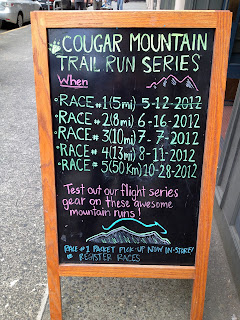 COUGAR MOUNTAIN
TRAIL RUN SERIES
When
RACE #1 (5mi) 5-12-2012
RACE #2 (8mi) 6-16-2012
RACE #3 (10mi) 7-7-2012
RACE #4 (13mi) 8-11-2012
RACE #5 (50Km) 10-28-2012
Test out our flight series
gear on these awesome
mountain runs!
RACE #1 PACKET PICK-UP NOW IN-STORE!
REGISTER RACES